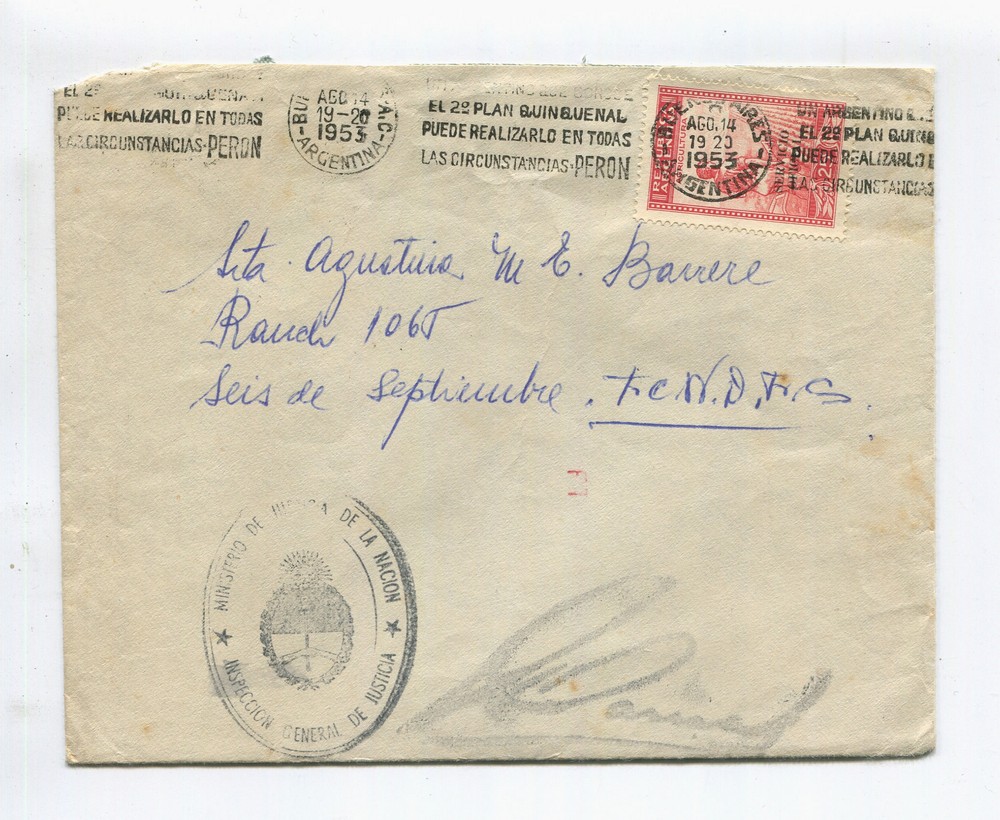 EL 2º
PUEDE REALIZARLO EN TODAS
LAS CIRCUNSTANCIAS·PERON
AGO. 14
19-20
1953
ARGENTINA
EL 2º PLAN QUINQUENAL
PUEDE REALIZARLO EN TODAS
LAS CIRCUNSTANCIAS·PERON
BUENOS AIRES
AGO. 14
19 20
1953
ARGENTINA
UN ARGENTINO
EL 2º PLAN
PUEDE REALIZARLO
LAS CIRCUNSTANCIAS
Sta. Agustina M E. Barrere
Rauch 1065
Seis de Septiembre. F.C.N.D.F.S.
MINISTERIO DE JUSTICIA DE LA NACION
INSPECCION GENERAL DE JUSTICIA